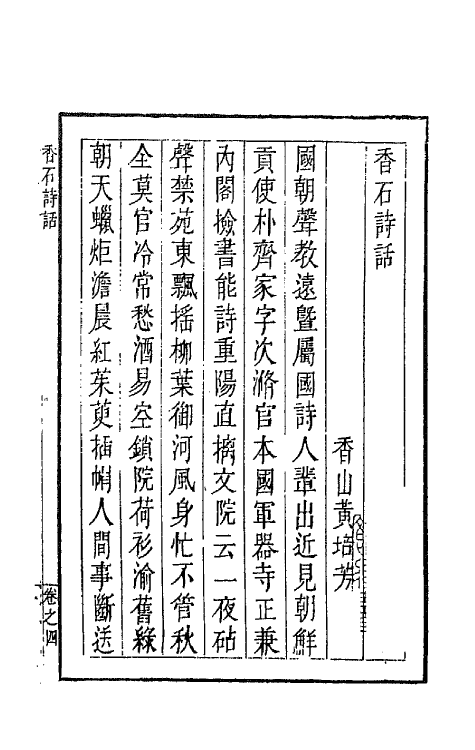 香石詩話
香山黃培芳
國朝聲教遠暨屬國詩人輩出近見朝鮮
貢使朴齊家字次脩官本國軍器寺正兼
內閣檢書能詩重陽直摛文院云一夜砧
聲禁苑東飄搖柳葉御河風身忙不管秋
全莫官冷常愁酒易空鎖院荷衫渝舊綠
朝天蠟炬澹晨紅茱萸插帽人間事斷送
香石詩話
卷之四